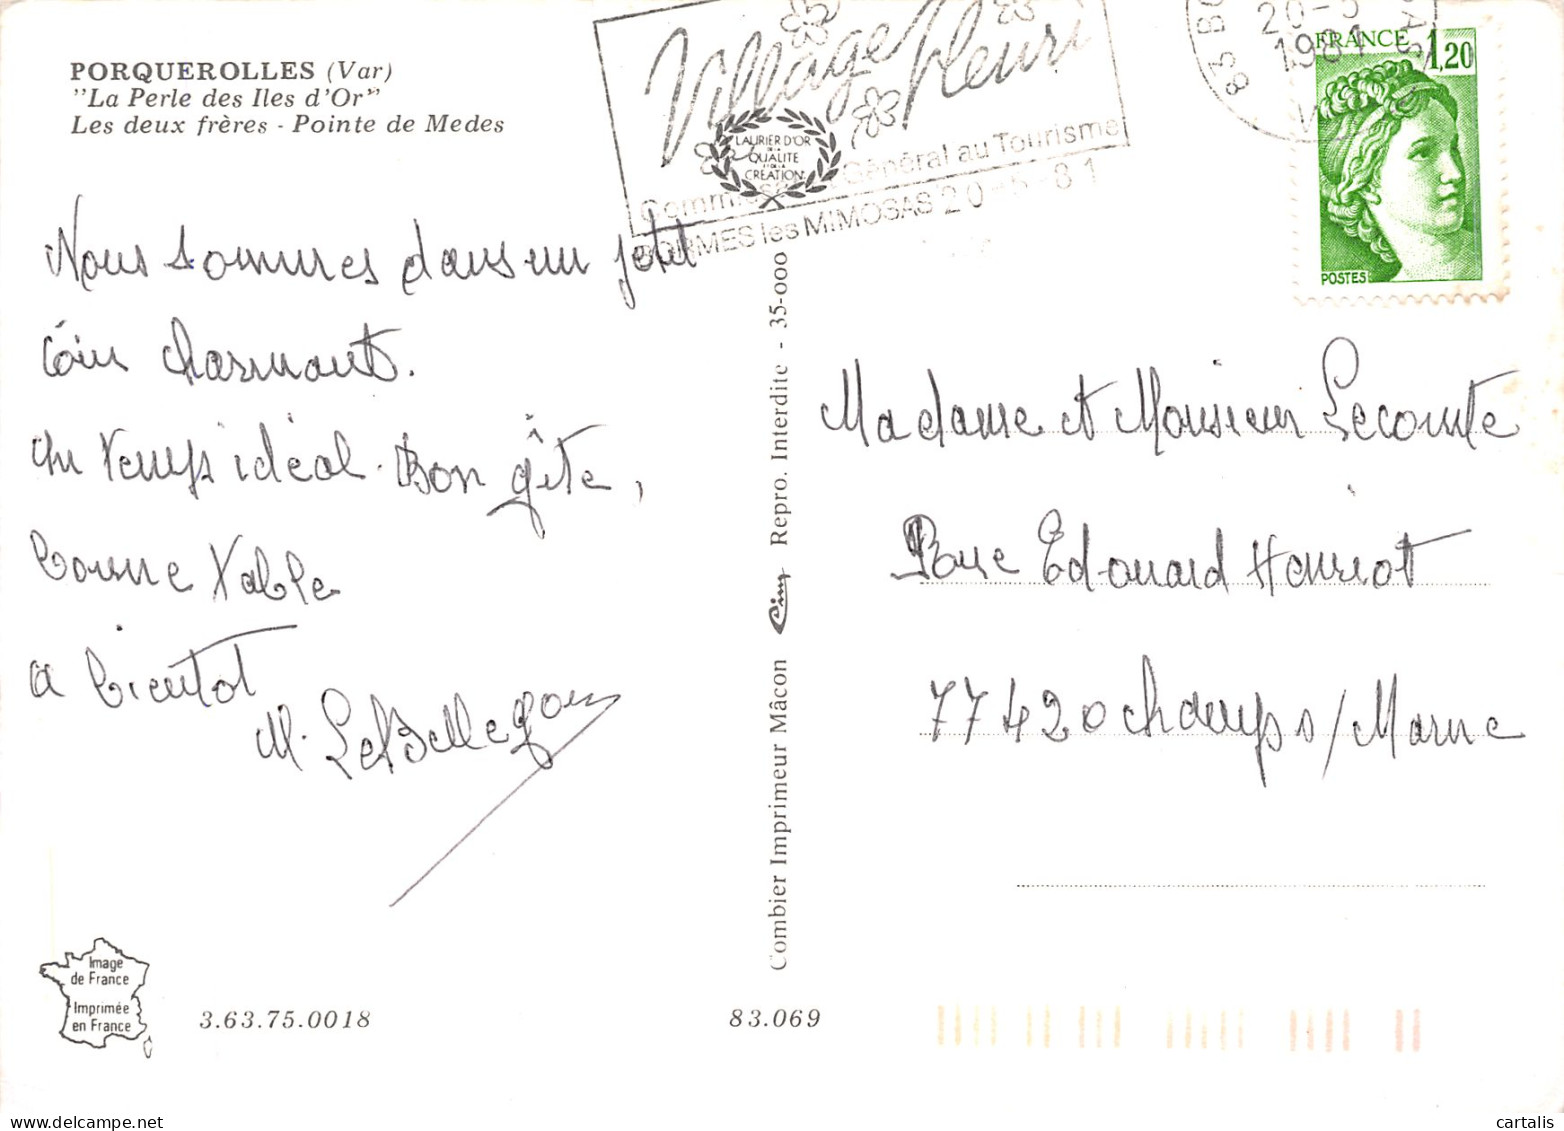 PORQUEROLLES (Var)
"La Perle des Iles d'Or"
Les deux frères - Pointe de Medes
Village fleuri
LAURIER D'OR
DE LA
QUALITE
ET DE LA
CREATION
Général au Tourisme
BORMES les MIMOSAS 20-5-81
83 BO
20-5
1981
FRANCE 1,20
POSTES
Nous sommes dans un petit
coin charmant.
un temps idéal. Bon gîte,
bonne table
a bientot
M. Le
Madame et Monsieur Lecomte
Rue Edouard Henriot
77420 Champs/Marne
Combier Imprimeur Mâcon Cim Repro. Interdite - 35-000
Image
de France
Imprimée
en France
3.63.75.0018
83.069
cartalis